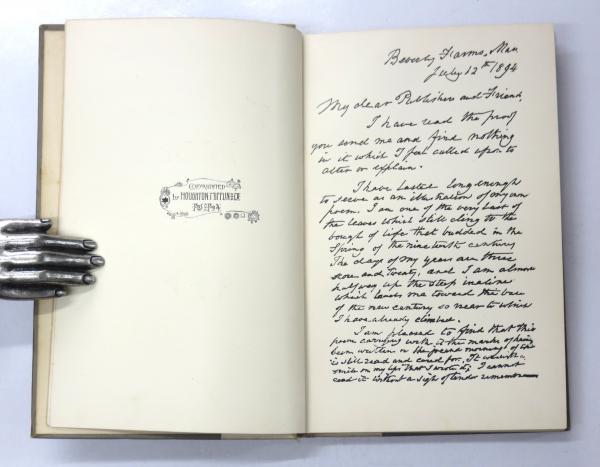 COPYRIGHTED
by HOUGHTON MIFFLIN & CO
Beverly Farms, Mass
July 12th 1894
My dear Publishers and Friend,
I have read the proof
you send me and find nothing
in it which I feel called upon to
alter or explain.
I have lasted long enough
to serve as an illustration of my own
poem. I am one of the very last of
the leaves which still cling to the
bough of life that budded in the
Spring of the nineteenth century.
The days of my years are three
score and twenty, and I am almost
half way up the steep incline
which leads me toward the base
of the new century so near to which
I have already climbed.
I am pleased to find that this
poem carrying with it the marks of having
been written in the jocund morning of life
is still read and cared for. It was with a
smile on my lips that I wrote it; I cannot
read it without a sigh of tender remembrance